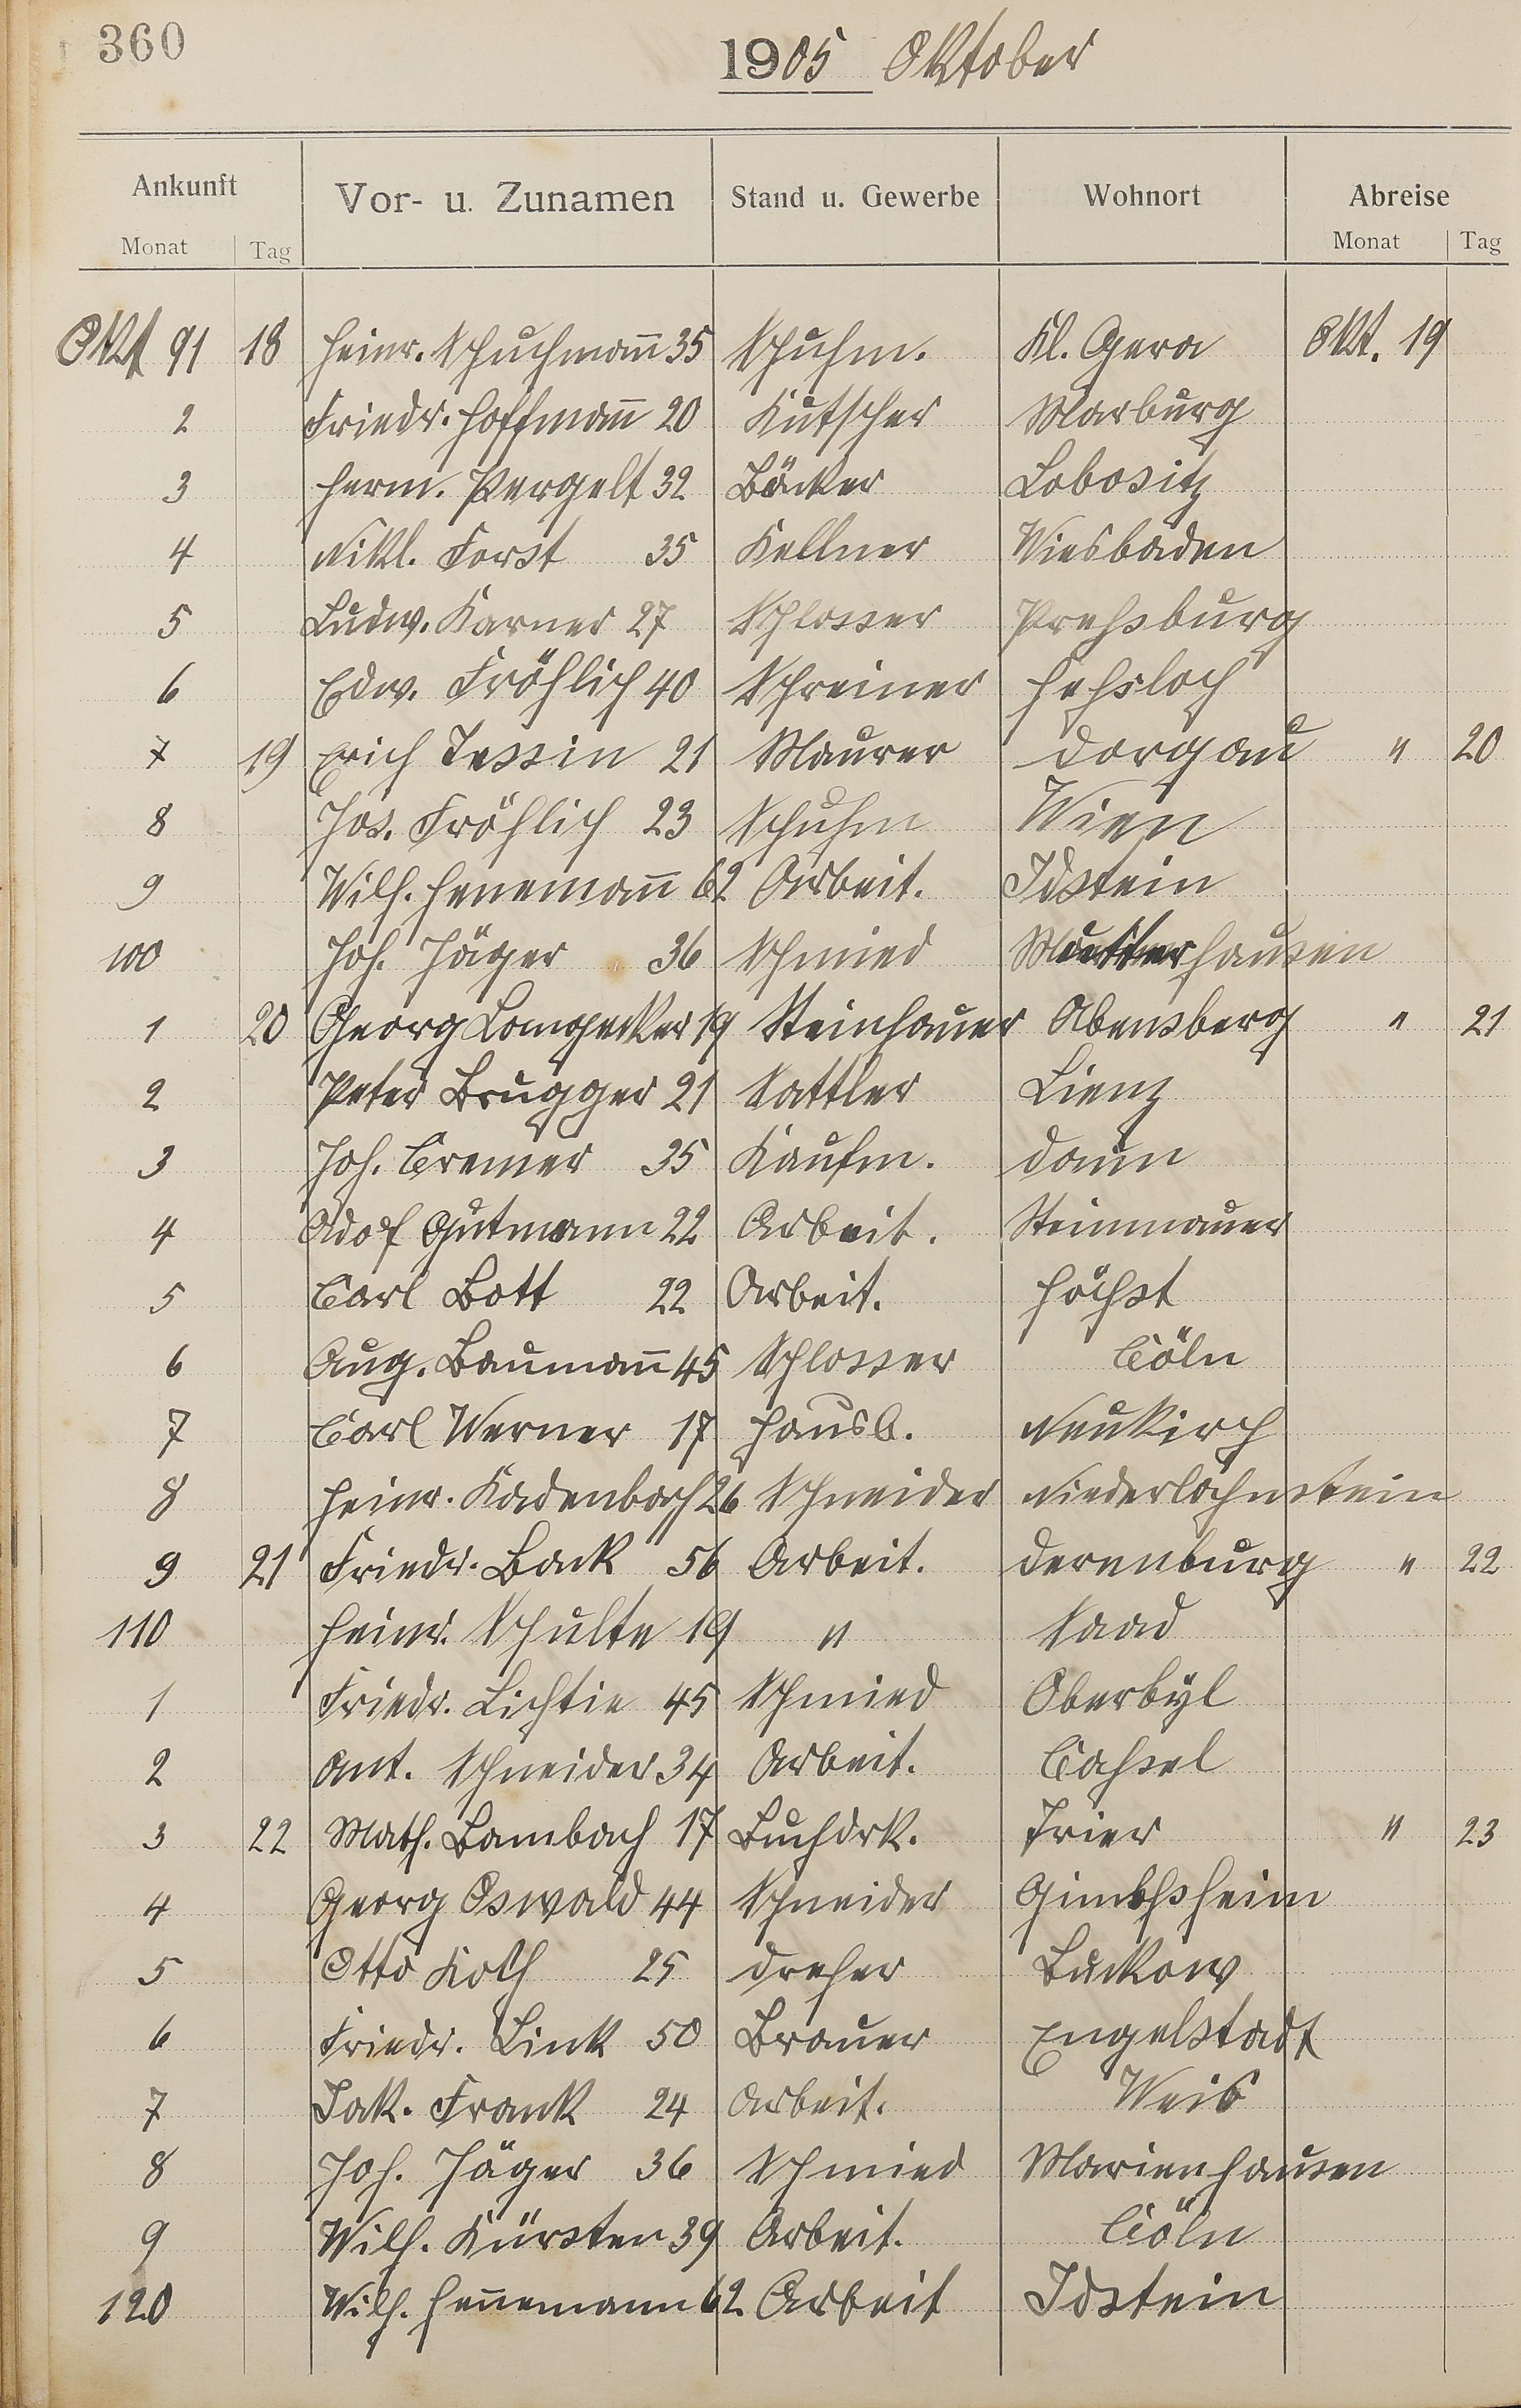 360
1905 Oktober
Ankunft Vor- u. Zunamen Stand u. Gewerbe Wohnort Abreise
Monat Tag Monat Tag
Okt 91 18 Heinr. Schuchmañ 35 Schuhm. Kl. Gera Okt. 19
2 Friedr. Hoffmañ 20 Kutscher Marburg
3 Herm. Pergelt 32 Bäcker Lobositz
4 Nikl. Forst 35 Kellner Wiesbaden
5 Ludw. Karner 27 Schlosser Preßburg
6 Edw. Fröhlich 40 Schreiner Heßloch
7 19 Erich Tessin 21 Maurer Dorgau " 20
8 Jos. Fröhlich 23 Schuhm Wien
9 Wilh. Henemañ 62 Arbeit. Idstein
100 Joh. Jäger 36 Schmied
1 20 Georg Langecker 19 Steinhauer Abensberg " 21
2 Peter Brugger 21 Sattler Lienz
3 Joh. Cremer 35 Kaufm. Daun
4 Adof Gutmann 22 Arbeit. Steinmauer
5 Carl Bott 22 Arbeit. Höchst
6 Aug. Baumañ 45 Schlosser Cöln
7 Carl Werner 17 Hausb. Neukirch
8 Heinr. Kadenbach 26 Schneider Niederlahnstein
9 21 Friedr. Back 56 Arbeit. Derenburg " 22
110 Heinr. Schulte 19 " Saad
1 Friedr. Lichtie 45 Schmied Oberbyl
2 Ant. Schneider 34 Arbeit. Caßel
3 22 Math. Bambach 17 Buchdrk. Trier " 23
4 Georg Oswald 44 Schneider
5 Otto Koth 25 Dreher Buckow
6 Friedr. Link 50 Brauer Engelstadt
7 Jak. Frank 24 Arbeit. Weis
8 Joh. Jäger 36 Schmied Marienhausen
9 Wilh. Kürsten 39 Arbeit. Cöln
120 Wilh. Heñemann 62 Arbeit Idstein